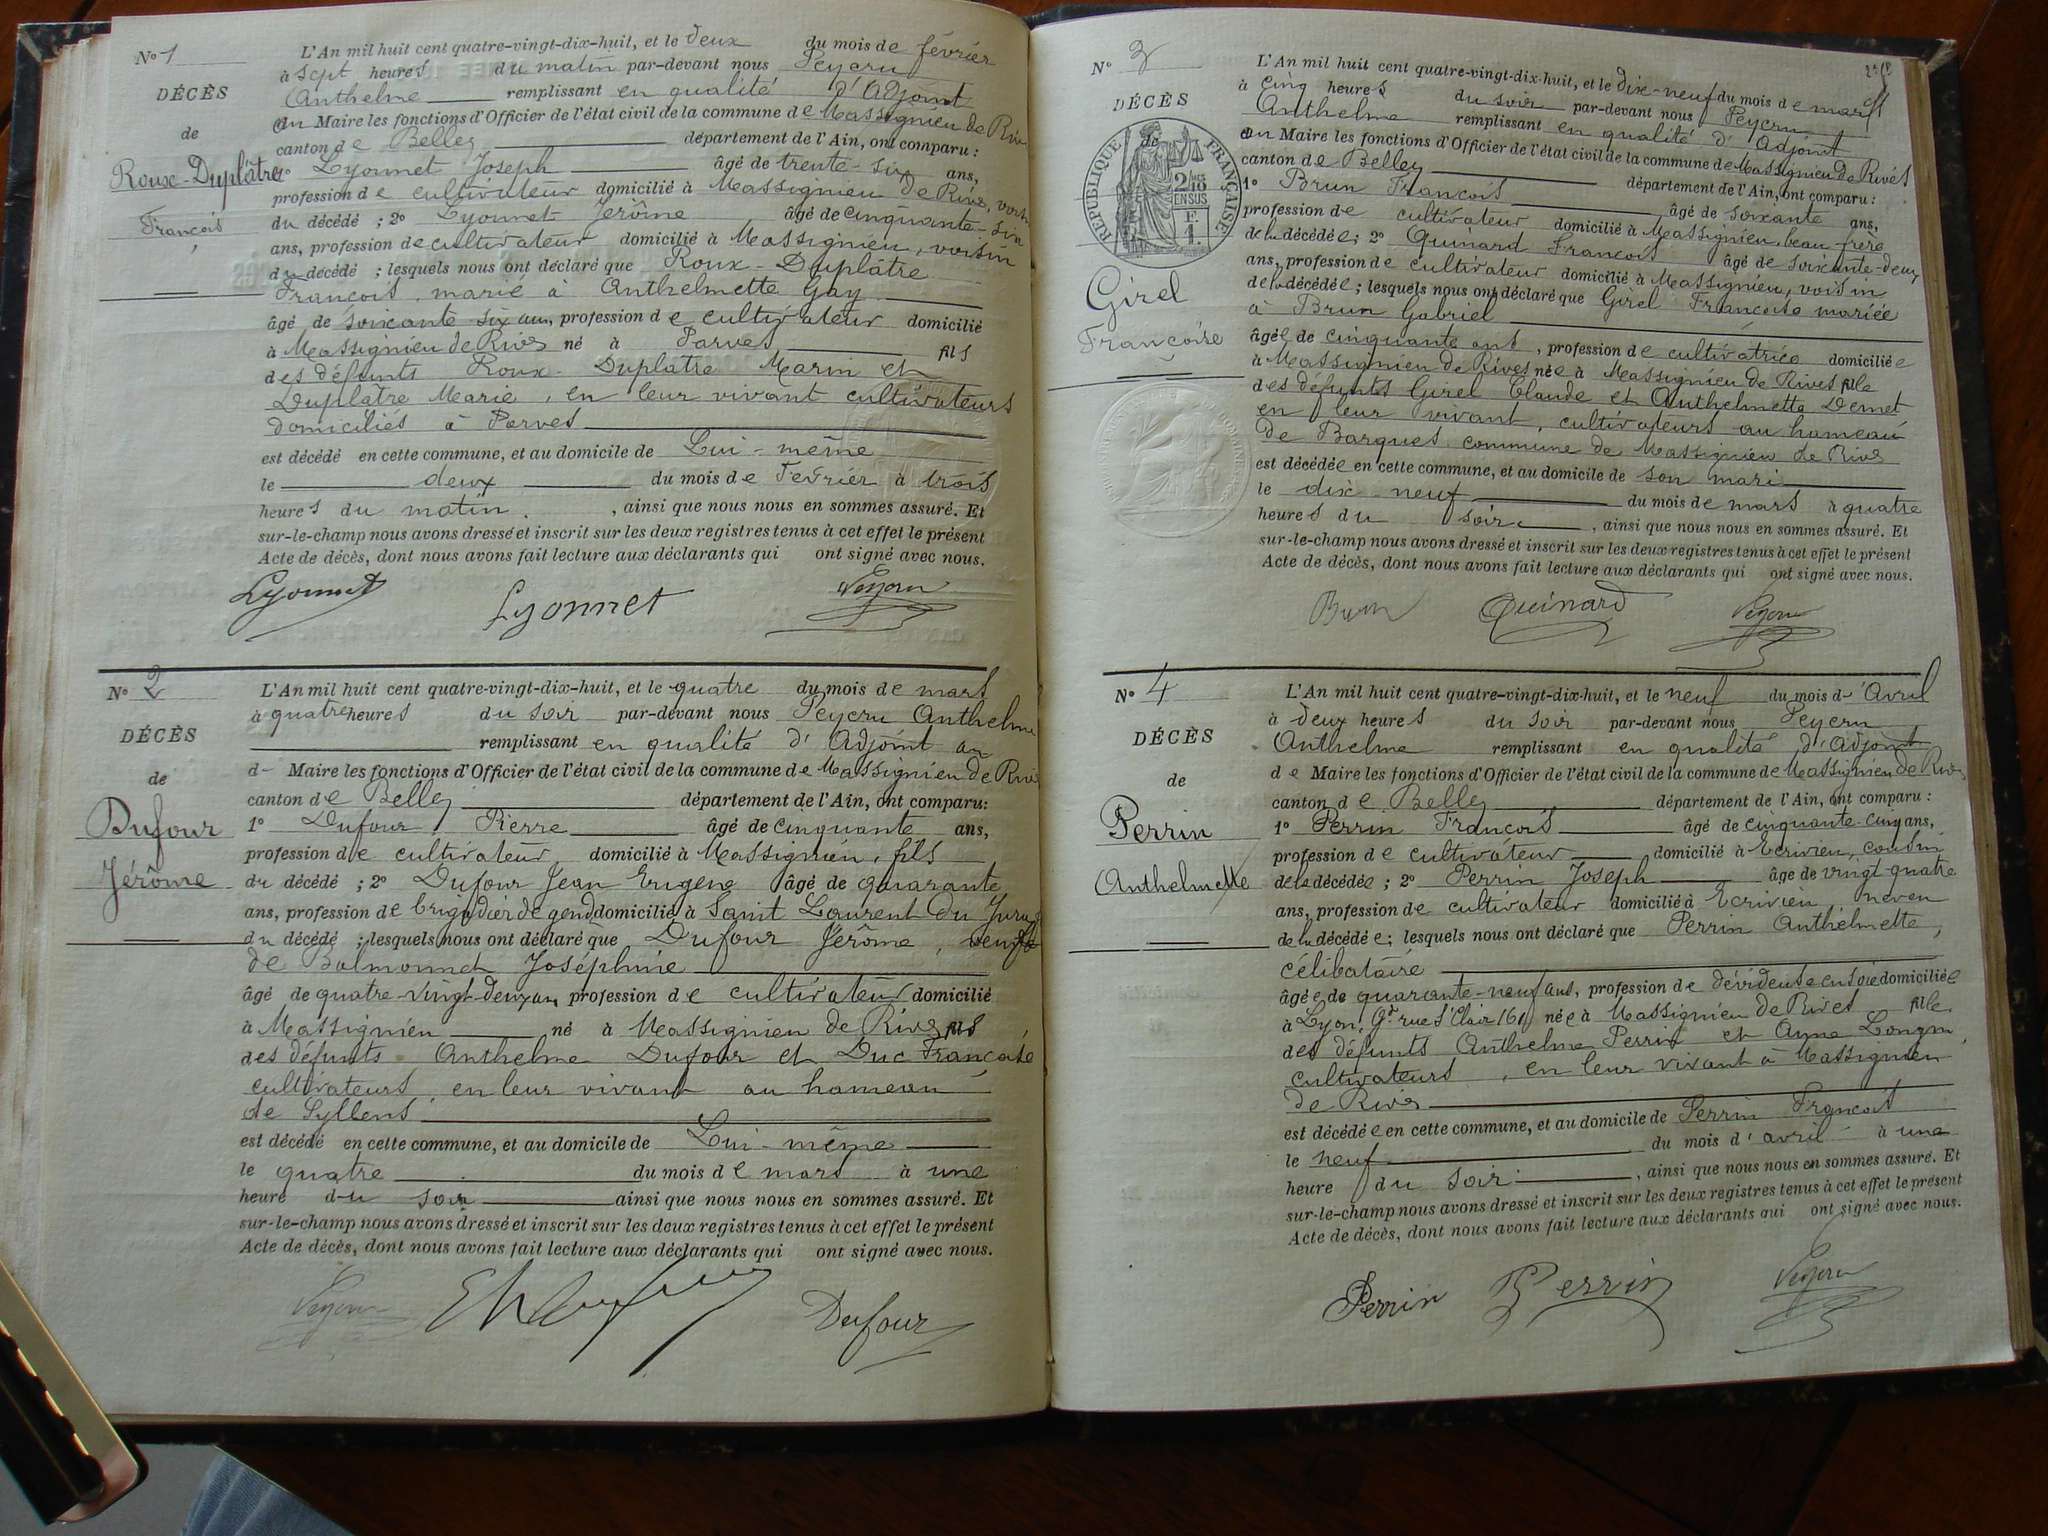 No 1
DÉCÈS
de
Roux-Duplâtre
François
L'An mil huit cent quatre-vingt-dix-huit, et le deux du mois de février
à sept heures du matin par-devant nous Peycru
Anthelme remplissant en qualité d'Adjoint
au Maire les fonctions d'Officier de l'état civil de la commune de Massignieu de Rives
canton de Belley département de l'Ain, ont comparu :
1º Lyonnet Joseph âgé de trente-six ans,
profession de cultivateur domicilié à Massignieu de Rives, voisin
du décédé ; 2º Lyonnet Jérôme âgé de cinquante-six
ans, profession de cultivateur domicilié à Massignieu, voisin
du décédé ; lesquels nous ont déclaré que Roux-Duplâtre
François, marié à Anthelmette Gay
âgé de soixante six ans, profession de cultivateur domicilié
à Massignieu de Rives né à Parves fils
des défunts Roux-Duplatre Marin et
Duplatre Marie, en leur vivant cultivateurs
domiciliés à Parves
est décédé en cette commune, et au domicile de Lui-même
le deux du mois de Février à trois
heures du matin. , ainsi que nous nous en sommes assuré. Et
sur-le-champ nous avons dressé et inscrit sur les deux registres tenus à cet effet le présent
Acte de décès, dont nous avons fait lecture aux déclarants qui ont signé avec nous.
Lyonnet Lyonnet
No 2
DÉCÈS
de
Dufour
Jérôme
L'An mil huit cent quatre-vingt-dix-huit, et le quatre du mois de mars
à quatre heures du soir par-devant nous Peycru Anthelme
remplissant en qualité d'Adjoint au
d- Maire les fonctions d'Officier de l'état civil de la commune de Massignieu de Rives
canton de Belley département de l'Ain, ont comparu:
1º Dufour Pierre âgé de cinquante ans,
profession de cultivateur domicilié à Massignieu, fils
du décédé ; 2º Dufour Jean Eugène âgé de quarante
ans, profession de brigadier de gend domicilié à Saint Laurent du Jura, fils
du décédé ; lesquels nous ont déclaré que Dufour Jérôme, veuf
de Balmonnet Joséphine
âgé de quatre-vingt-deux ans profession de cultivateur domicilié
à Massignieu né à Massignieu de Rives fils
des défunts Anthelme Dufour et Duc Françoise
cultivateurs en leur vivant au hameau
de Syllens
est décédé en cette commune, et au domicile de Lui-même
le quatre du mois de mars à une
heure du soir ainsi que nous nous en sommes assuré. Et
sur-le-champ nous avons dressé et inscrit sur les deux registres tenus à cet effet le présent
Acte de décès, dont nous avons fait lecture aux déclarants qui ont signé avec nous.
Dufour
No 3
DÉCÈS
de
RÉPUBLIQUE FRANÇAISE
2/10 EN SUS
F. 1.
Girel
Françoise
L'An mil huit cent quatre-vingt-dix-huit, et le dix-neuf du mois de mars
à cinq heures du soir par-devant nous Peycru
Anthelme remplissant en qualité d'Adjoint
au Maire les fonctions d'Officier de l'état civil de la commune de Massignieu de Rives
canton de Belley département de l'Ain, ont comparu :
1º Brun François âgé de soixante ans,
profession de cultivateur domicilié à Massignieu, beau frère
de la décédée; 2º Quinard François âgé de soixante-deux
ans, profession de cultivateur domicilié à Massignieu, voisin
de la décédée ; lesquels nous ont déclaré que Girel Françoise mariée
à Brun Gabriel
âgée de cinquante ans, profession de cultivatrice domiciliée
à Massignieu de Rives née à Massignieu de Rives fille
des défunts Girel Claude et Anthelmette Dernet
en leur vivant, cultivateurs au hameau
de Barques commune de Massignieu de Rives
est décédée en cette commune, et au domicile de son mari
le dix-neuf du mois de mars à quatre
heures du soir , ainsi que nous nous en sommes assuré. Et
sur-le-champ nous avons dressé et inscrit sur les deux registres tenus à cet effet le présent
Acte de décès, dont nous avons fait lecture aux déclarants qui ont signé avec nous.
Brun Quinard
No 4
DÉCÈS
de
Perrin
Anthelmette
L'An mil huit cent quatre-vingt-dix-huit, et le neuf du mois d'Avril
à deux heures du soir par-devant nous Peycru
Anthelme remplissant en qualité d'Adjoint
de Maire les fonctions d'Officier de l'état civil de la commune de Massignieu de Rives
canton de Belley département de l'Ain, ont comparu :
1º Perrin François âgé de cinquante-cinq ans,
profession de cultivateur domicilié à Ecrivieu, cousin
de la décédée; 2º Perrin Joseph âgé de vingt-quatre
ans, profession de cultivateur domicilié à Ecrivieu, neveu
de la décédée; lesquels nous ont déclaré que Perrin Anthelmette,
célibataire
âgée de quarante-neuf ans, profession de dévideuse en soie domiciliée
à Lyon, Gde rue St Clair 161 née à Massignieu de Rives fille
des défunts Anthelme Perrin et Ayme
cultivateurs, en leur vivant à Massignieu
de Rives
est décédée en cette commune, et au domicile de Perrin François
le neuf du mois d'avril à une
heure du soir , ainsi que nous nous en sommes assuré. Et
sur-le-champ nous avons dressé et inscrit sur les deux registres tenus à cet effet le présent
Acte de décès, dont nous avons fait lecture aux déclarants qui ont signé avec nous.
Perrin Perrin